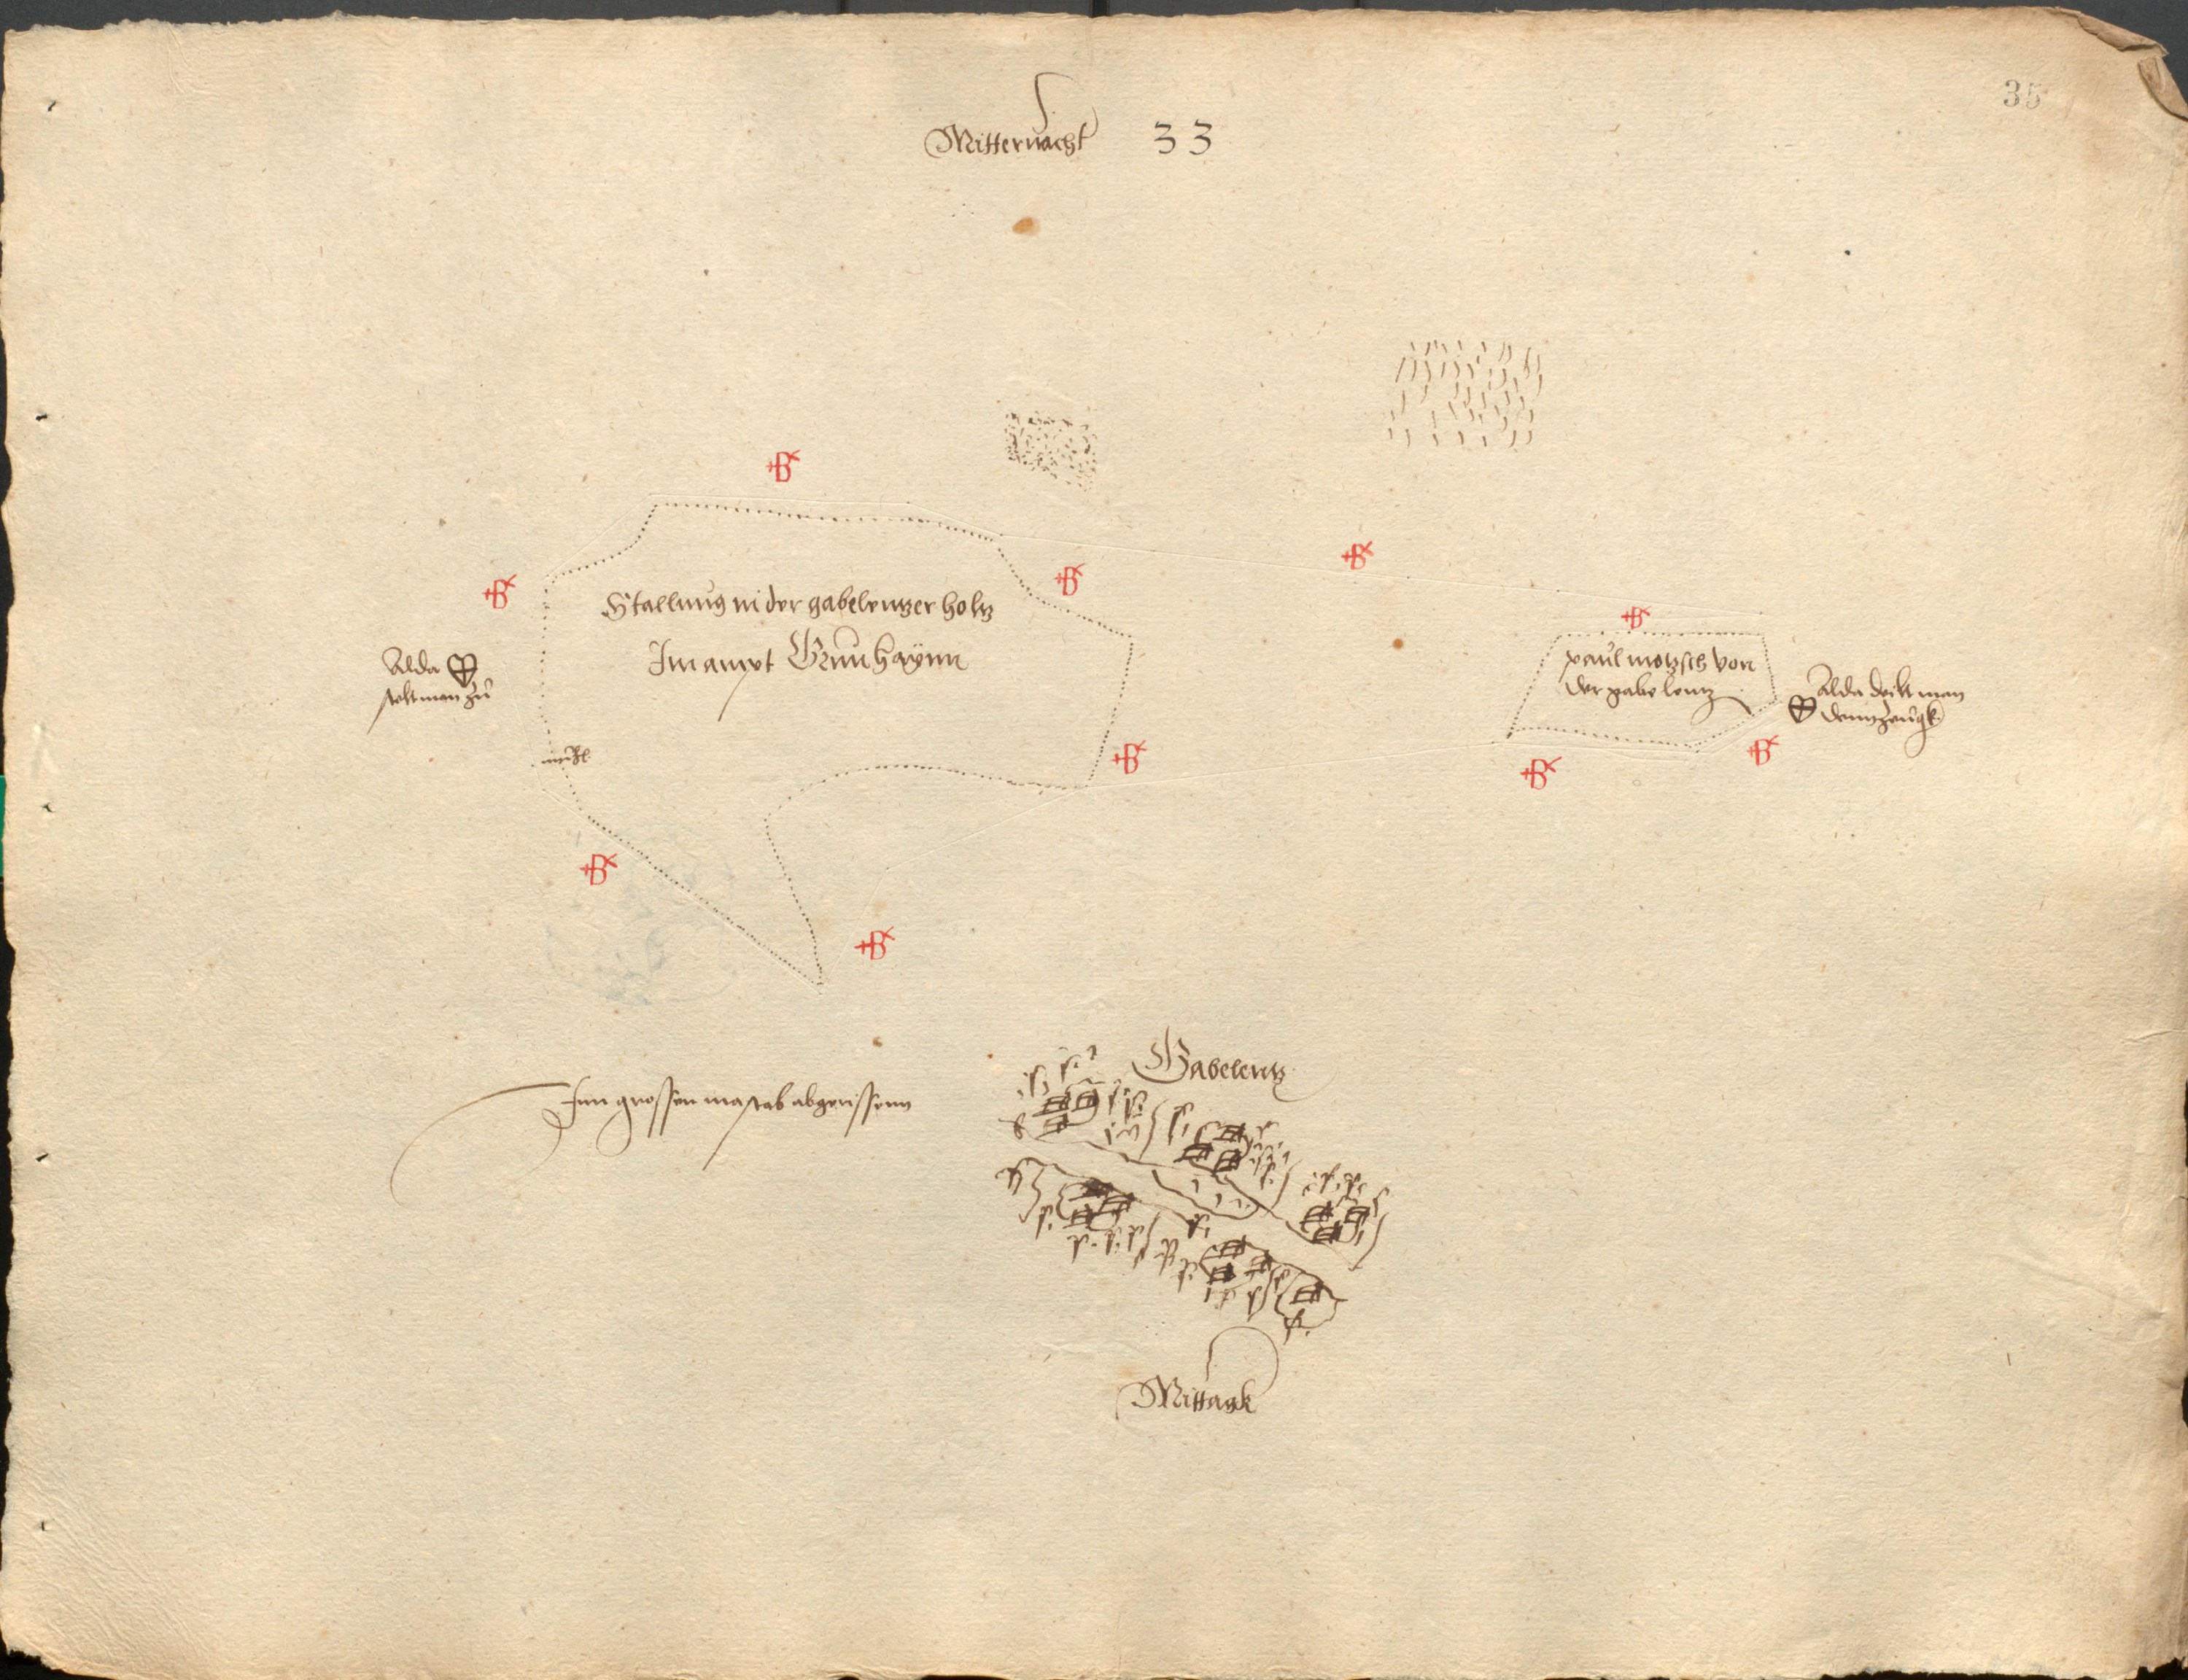 35
Mitternacht 33
Stallung in der gabelentzer holtz
Im ampt Grunhaÿnn
Alda
stelt man zu
paul motzsch von
der gabelentz
Alda
man
Inn grossen mastab abgerissenn
Gabelentz
Mittagk